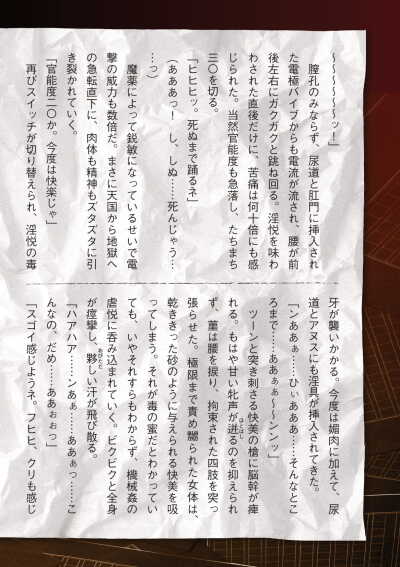 ～～～～～～ッ！」
　膣孔のみならず、尿道と肛門に挿入され
た電極バイブからも電流が流され、腰が前
後左右にガクガクと跳ね回る。淫悦を味わ
わされた直後だけに、苦痛は何十倍にも感
じられた。当然官能度も急落し、たちまち
三〇を切る。
「ヒヒヒッ。死ぬまで踊るネ」
（あああっ！　し、しぬ……死んじゃう…
…っ）
　魔薬によって鋭敏になっているせいで電
撃の威力も数倍だ。まさに天国から地獄へ
の急転直下に、肉体も精神もズタズタに引
き裂かれていく。
「官能度二〇か。今度は快楽じゃ」
　再びスイッチが切り替えられ、淫悦の毒
牙が襲いかかる。今度は媚肉に加えて、尿
道とアヌスにも淫具が挿入されてきた。
「ンああぁ……ひぃあああ……そんなとこ
ろまで……ああぁぁ～～ンンッ」
　ツーンと突き刺さる快美の槍に脳幹が痺
れる。もはや甘い牝声が迸るのを抑えられ
ず、菫は腰を捩り、拘束された四肢を突っ
張らせた。極限まで責め嬲られた女体は、
乾ききった砂のように与えられる快美を吸
ってしまう。それが毒の蜜だとわかってい
ても、いやそれすらもわからず、機械姦の
虐悦に呑み込まれていく。ビクビクと全身
が痙攣し、夥しい汗が飛び散る。
「ハアハア……ンあぁ……ああぁっ……こ
んなの、だめ……ああぉぉっ」
「スゴイ感じようネ。フヒヒ、クリも感じ